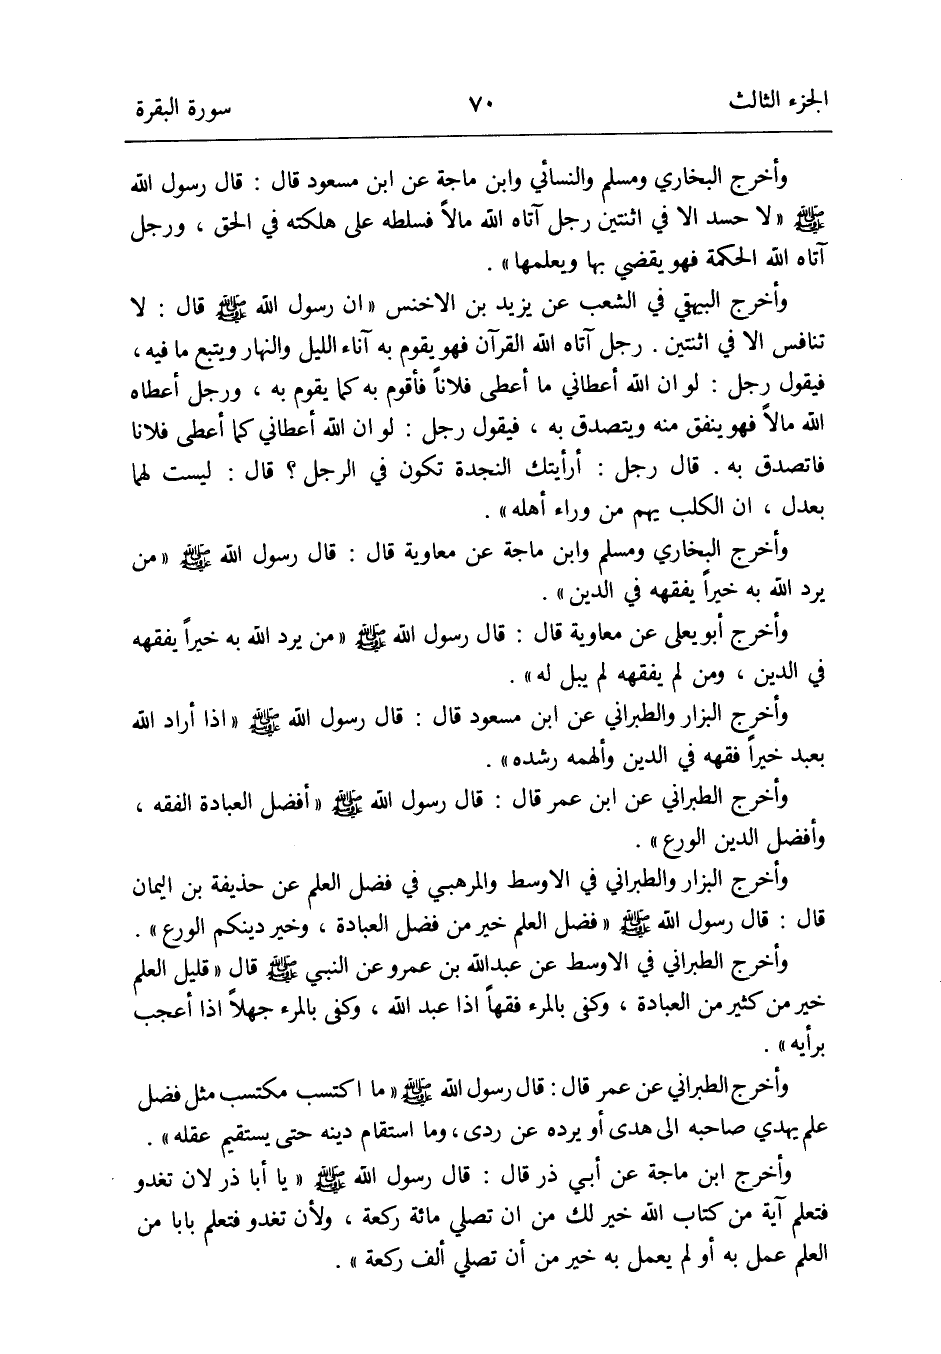 الجزء الثالث ٧٠ سورة البقرة
وأخرج البخاري ومسلم والنسائي وابن ماجة عن ابن مسعود قال : قال رسول الله
ﷺ «لا حسد الا في اثنتين رجل آتاه الله مالاً فسلطه على هلكته في الحق ، ورجل
آتاه الله الحكمة فهو يقضي بها ويعلمها» .
وأخرج البيهقي في الشعب عن يزيد بن الاخنس «ان رسول الله ﷺ قال : لا
تنافس الا في اثنتين . رجل آتاه الله القرآن فهو يقوم به آناء الليل والنهار ويتبع ما فيه ،
فيقول رجل : لو ان الله أعطاني ما أعطى فلاناً فأقوم به كما يقوم به ، ورجل أعطاه
الله مالاً فهو ينفق منه ويتصدق به ، فيقول رجل : لو ان الله أعطاني كما أعطى فلانا
فاتصدق به . قال رجل : أرأيتك النجدة تكون في الرجل ؟ قال : ليست لهما
بعدل ، ان الكلب يهم من وراء أهله» .
وأخرج البخاري ومسلم وابن ماجة عن معاوية قال : قال رسول الله ﷺ «من
يرد الله به خيراً يفقهه في الدين» .
وأخرج أبو يعلى عن معاوية قال : قال رسول الله ﷺ «من يرد الله به خيراً يفقهه
في الدين ، ومن لم يفقهه لم يبل له» .
وأخرج البزار والطبراني عن ابن مسعود قال : قال رسول الله ﷺ «اذا أراد الله
بعبد خيراً فقهه في الدين وألهمه رشده» .
وأخرج الطبراني عن ابن عمر قال : قال رسول الله ﷺ «أفضل العبادة الفقه ،
وأفضل الدين الورع» .
وأخرج البزار والطبراني في الاوسط والمرهبي في فضل العلم عن حذيفة بن اليمان
قال : قال رسول الله ﷺ «فضل العلم خير من فضل العبادة ، وخير دينكم الورع» .
وأخرج الطبراني في الاوسط عن عبدالله بن عمرو عن النبي ﷺ قال «قليل العلم
خير من كثير من العبادة ، وكفى بالمرء فقهاً اذا عبد الله ، وكفى بالمرء جهلاً اذا أعجب
برأيه» .
وأخرج الطبراني عن عمر قال : قال رسول الله ﷺ «ما اكتسب مكتسب مثل فضل
علم يهدي صاحبه الى هدى أو يرده عن ردى ، وما استقام دينه حتى يستقيم عقله» .
وأخرج ابن ماجة عن أبي ذر قال : قال رسول الله ﷺ «يا أبا ذر لان تغدو
فتعلم آية من كتاب الله خير لك من ان تصلي مائة ركعة ، ولأن تغدو فتعلم بابا من
العلم عمل به أو لم يعمل به خير من أن تصلي ألف ركعة» .